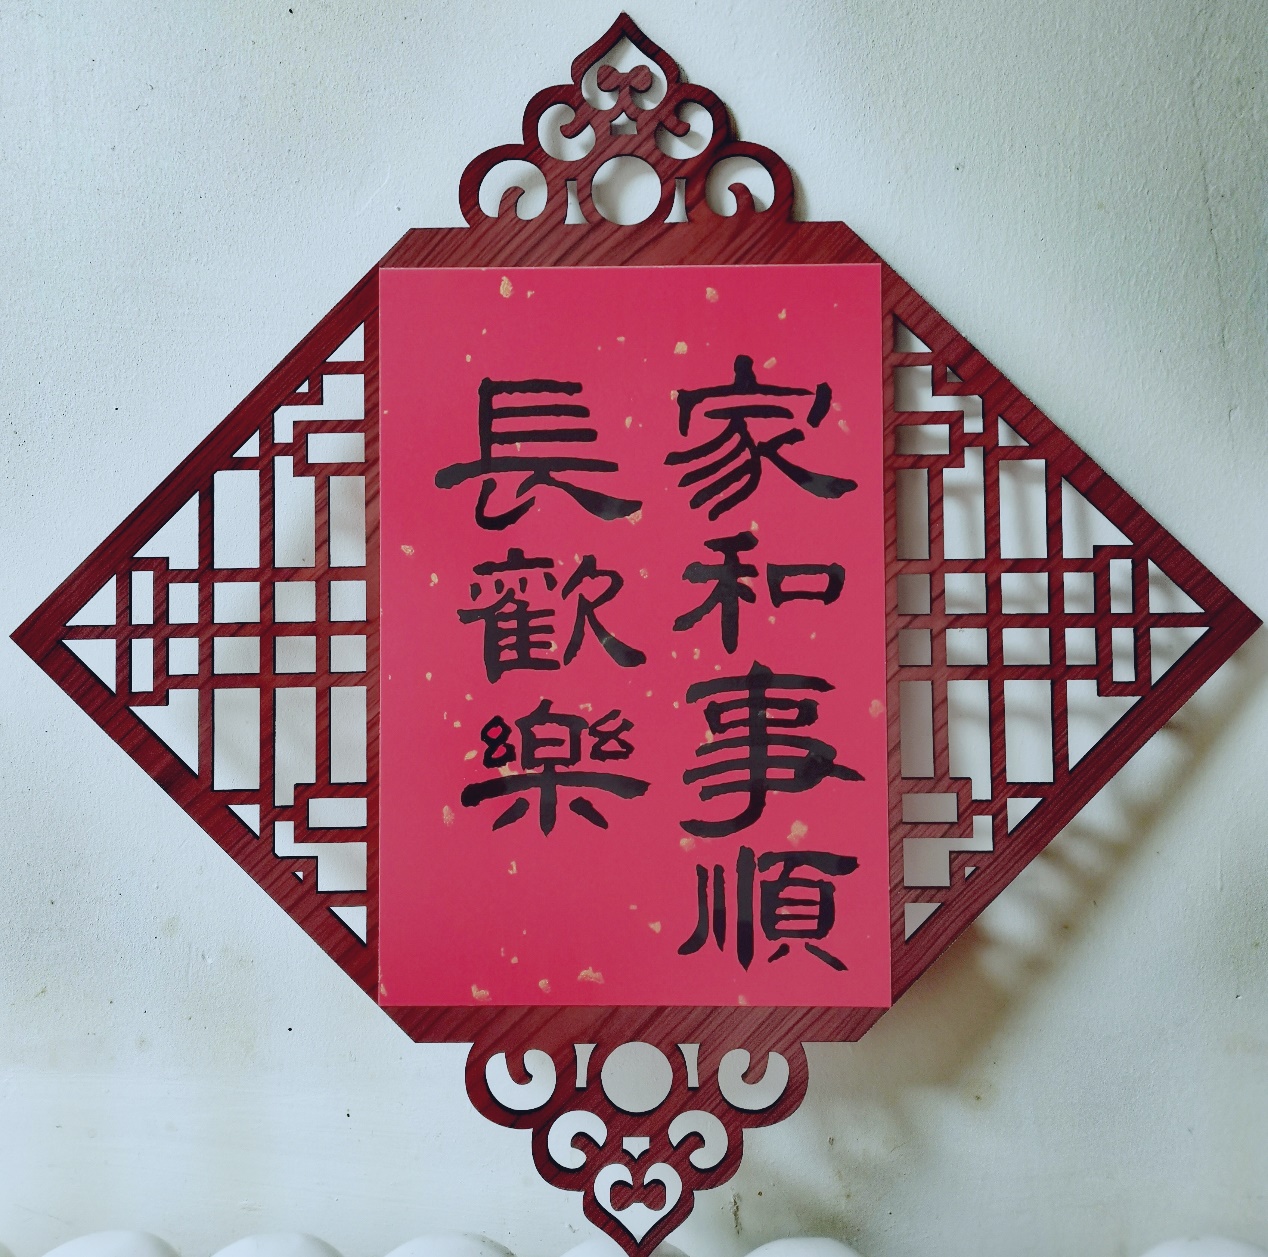 家和事順
長歡樂